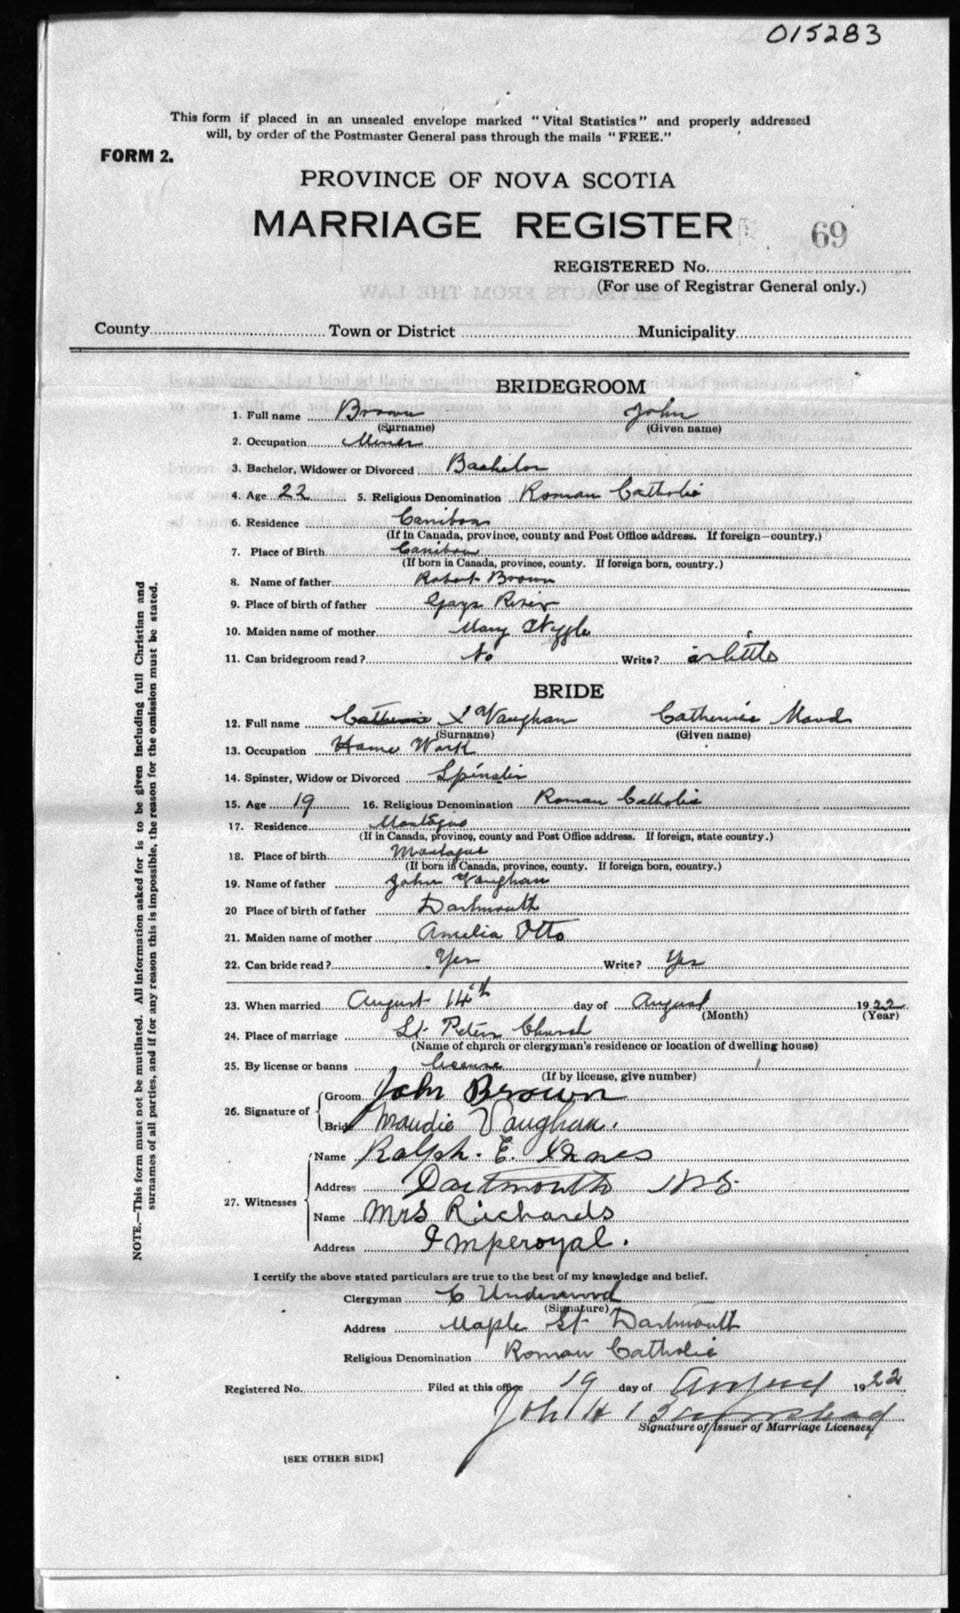 015283
This form if placed in an unsealed envelope marked "Vital Statistics" and properly addressed
will, by order of the Postmaster General pass through the mails "FREE."
FORM 2.
PROVINCE OF NOVA SCOTIA
MARRIAGE REGISTER
69
REGISTERED No.
(For use of Registrar General only.)
County Town or District Municipality
BRIDEGROOM
1. Full name Brown John
(Surname) (Given name)
2. Occupation Miner
3. Bachelor, Widower or Divorced Bachelor
4. Age 22 5. Religious Denomination Roman Catholic
6. Residence Caribou
(If in Canada, province, county and Post Office address. If foreign—country.)
7. Place of Birth Caribou
(If born in Canada, province, county. If foreign born, country.)
8. Name of father Robert Brown
9. Place of birth of father Gays River
10. Maiden name of mother Mary
11. Can bridegroom read? No Write? a little
BRIDE
12. Full name Vaughan Catherine Maud
(Surname) (Given name)
13. Occupation Home Work
14. Spinster, Widow or Divorced Spinster
15. Age 19 16. Religious Denomination Roman Catholic
17. Residence Montague
(If in Canada, province, county and Post Office address. If foreign, state country.)
18. Place of birth Montague
(If born in Canada, province, county. If foreign born, country.)
19. Name of father John Vaughan
20 Place of birth of father Dartmouth
21. Maiden name of mother Amelia Otto
22. Can bride read? Yes Write? Yes
23. When married August 14th day of August 1922
(Month) (Year)
24. Place of marriage St. Peters Church
(Name of church or clergyman's residence or location of dwelling house)
25. By license or banns license
(If by license, give number)
26. Signature of Groom John Brown
Bride Maudie Vaughan.
27. Witnesses Name Ralph. E.
Address Dartmouth N.S.
Name Mrs Richards
Address Imperoyal.
I certify the above stated particulars are true to the best of my knowledge and belief.
Clergyman C Underwood
(Signature)
Address Maple St Dartmouth
Religious Denomination Roman Catholic
Registered No. Filed at this office 19 day of August 1922
John H
Signature of Issuer of Marriage Licenses
[SEE OTHER SIDE]
NOTE.—This form must not be mutilated. All information asked for is to be given including full Christian and
surnames of all parties, and if for any reason this is impossible, the reason for the omission must be stated.